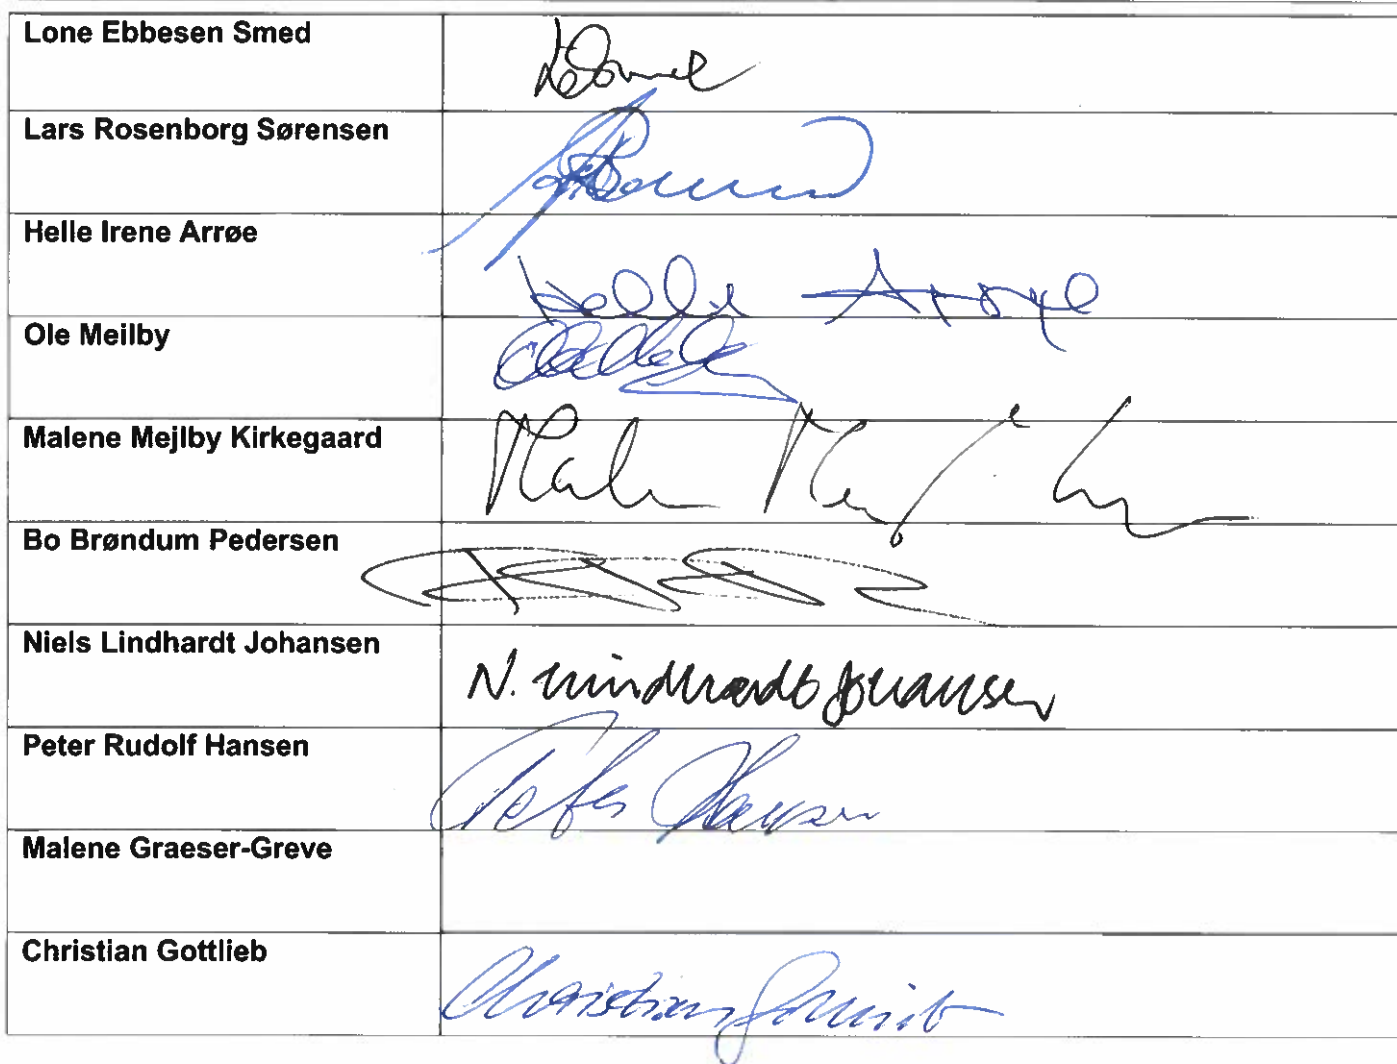 Lone Ebbesen Smed
Lars Rosenborg Sørensen
Helle Irene Arrøe
Helle Arrøe
Ole Meilby
Malene Mejlby Kirkegaard
Bo Brøndum Pedersen
Niels Lindhardt Johansen
N. Lindhardt Johansen
Peter Rudolf Hansen
Peter Hansen
Malene Graeser-Greve
Christian Gottlieb
Christian Gottlieb